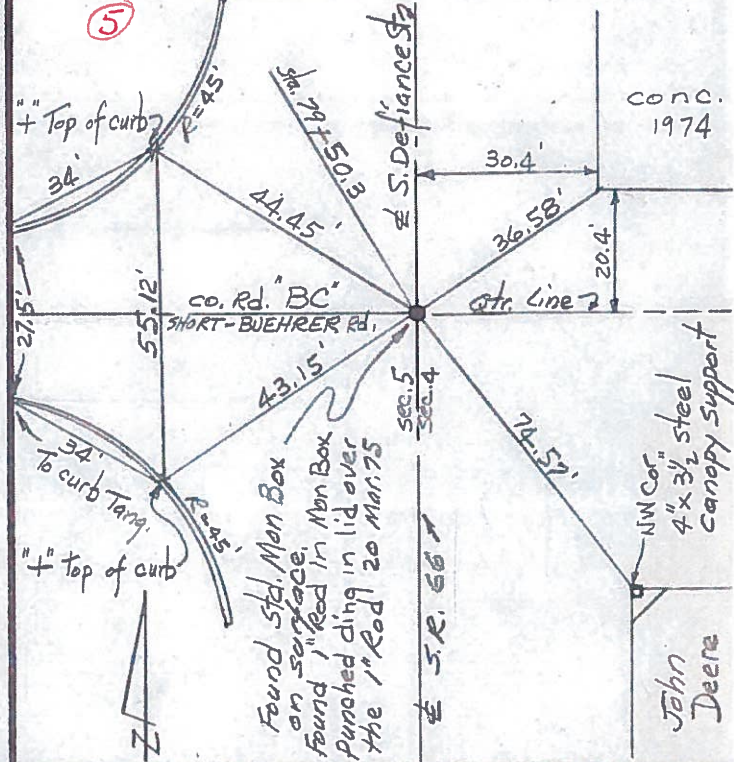 5
"+" Top of curb
R=45'
34'
44.45'
Sta. 76+50.3
℄ S. Defiance St.
conc.
1974
30.4'
36.58'
20.4'
27.5'
55.12'
co. Rd. "BC"
SHORT-BUEHRER Rd.
Qtr. Line
43.15'
sec. 5
sec. 4
74.57'
34'
To curb Tang.
R=45'
"+" top of curb
Found Std. Mon Box
on surface.
Found 1" Rod in Mon Box
Punched ding in lid over
the 1" Rod 20 Mar. 75
℄ S.R. 66
NW Cor.
4" x 3½" steel
canopy support
John
Deere